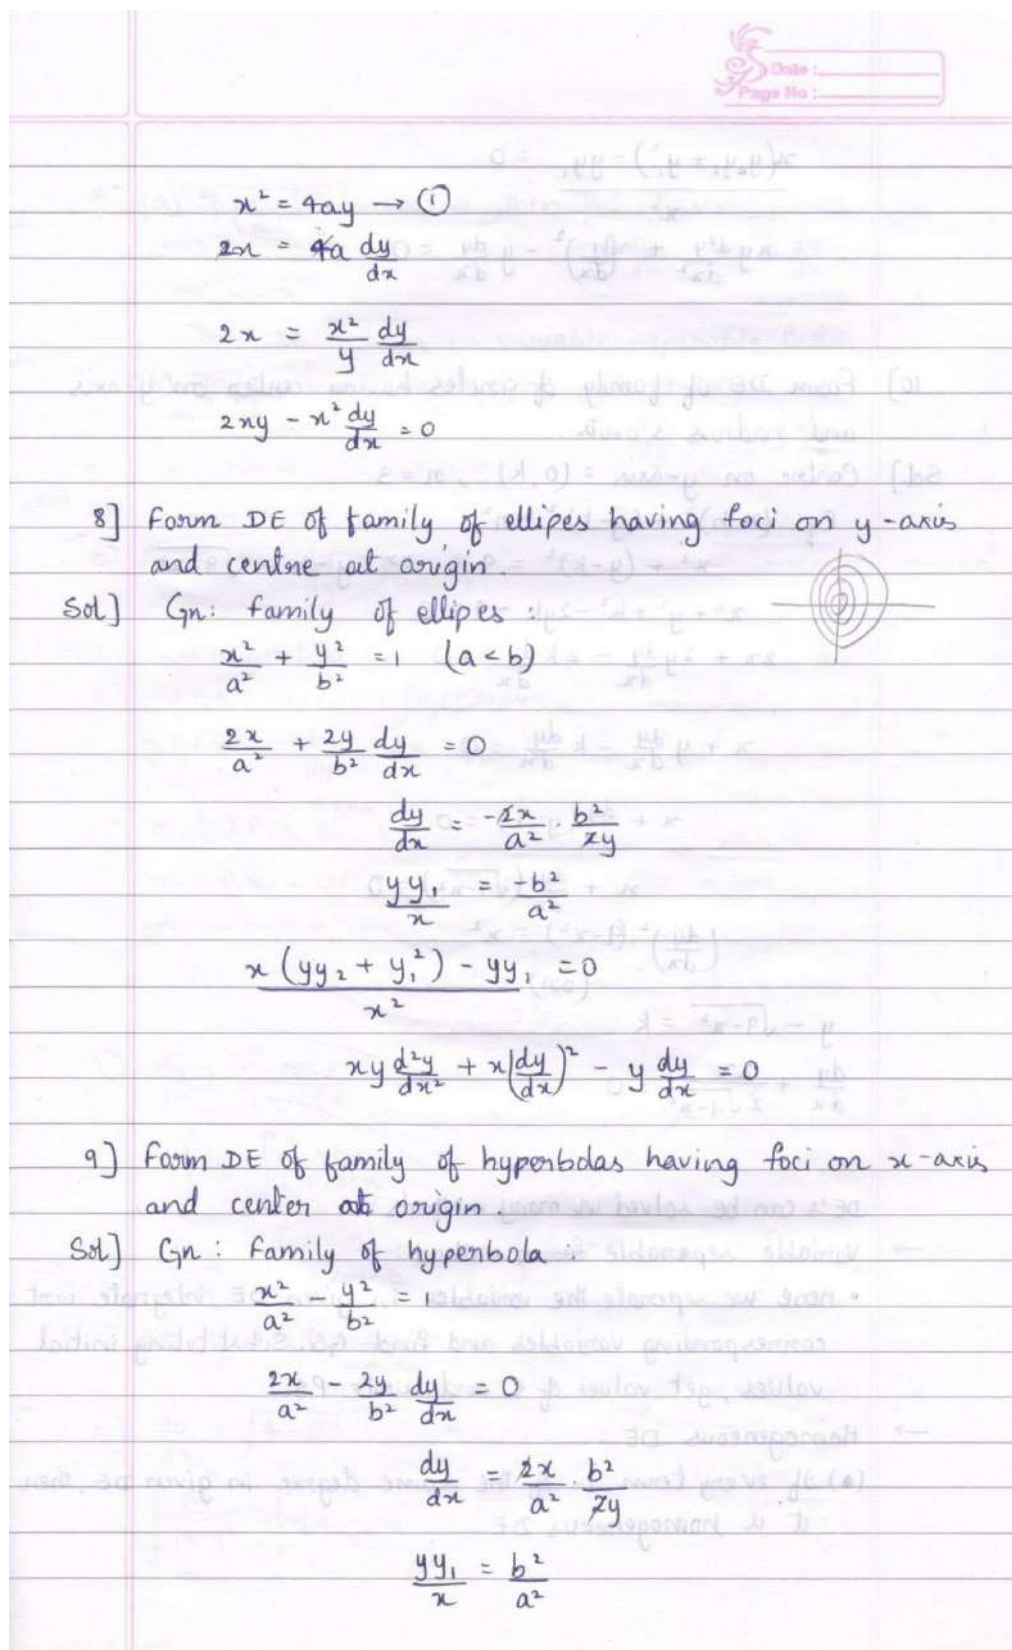 Date :
Page No :
x² = 4ay → ①
2x = 4a dy/dx
2x = x²/y dy/dx
2xy - x² dy/dx = 0
8] Form DE of family of ellipes having foci on y-axis
and centre at origin.
Sol] Gn: family of ellipes :
x²/a² + y²/b² = 1 (a < b)
2x/a² + 2y/b² dy/dx = 0
dy/dx = -2x/a² · b²/2y
yy₁/x = -b²/a²
x(yy₂ + y₁²) - yy₁ / x² = 0
xy d²y/dx² + x(dy/dx)² - y dy/dx = 0
9] Form DE of family of hyperbolas having foci on x-axis
and center at origin.
Sol] Gn : Family of hyperbola :
x²/a² - y²/b² = 1
2x/a² - 2y/b² dy/dx = 0
dy/dx = 2x/a² · b²/2y
yy₁/x = b²/a²